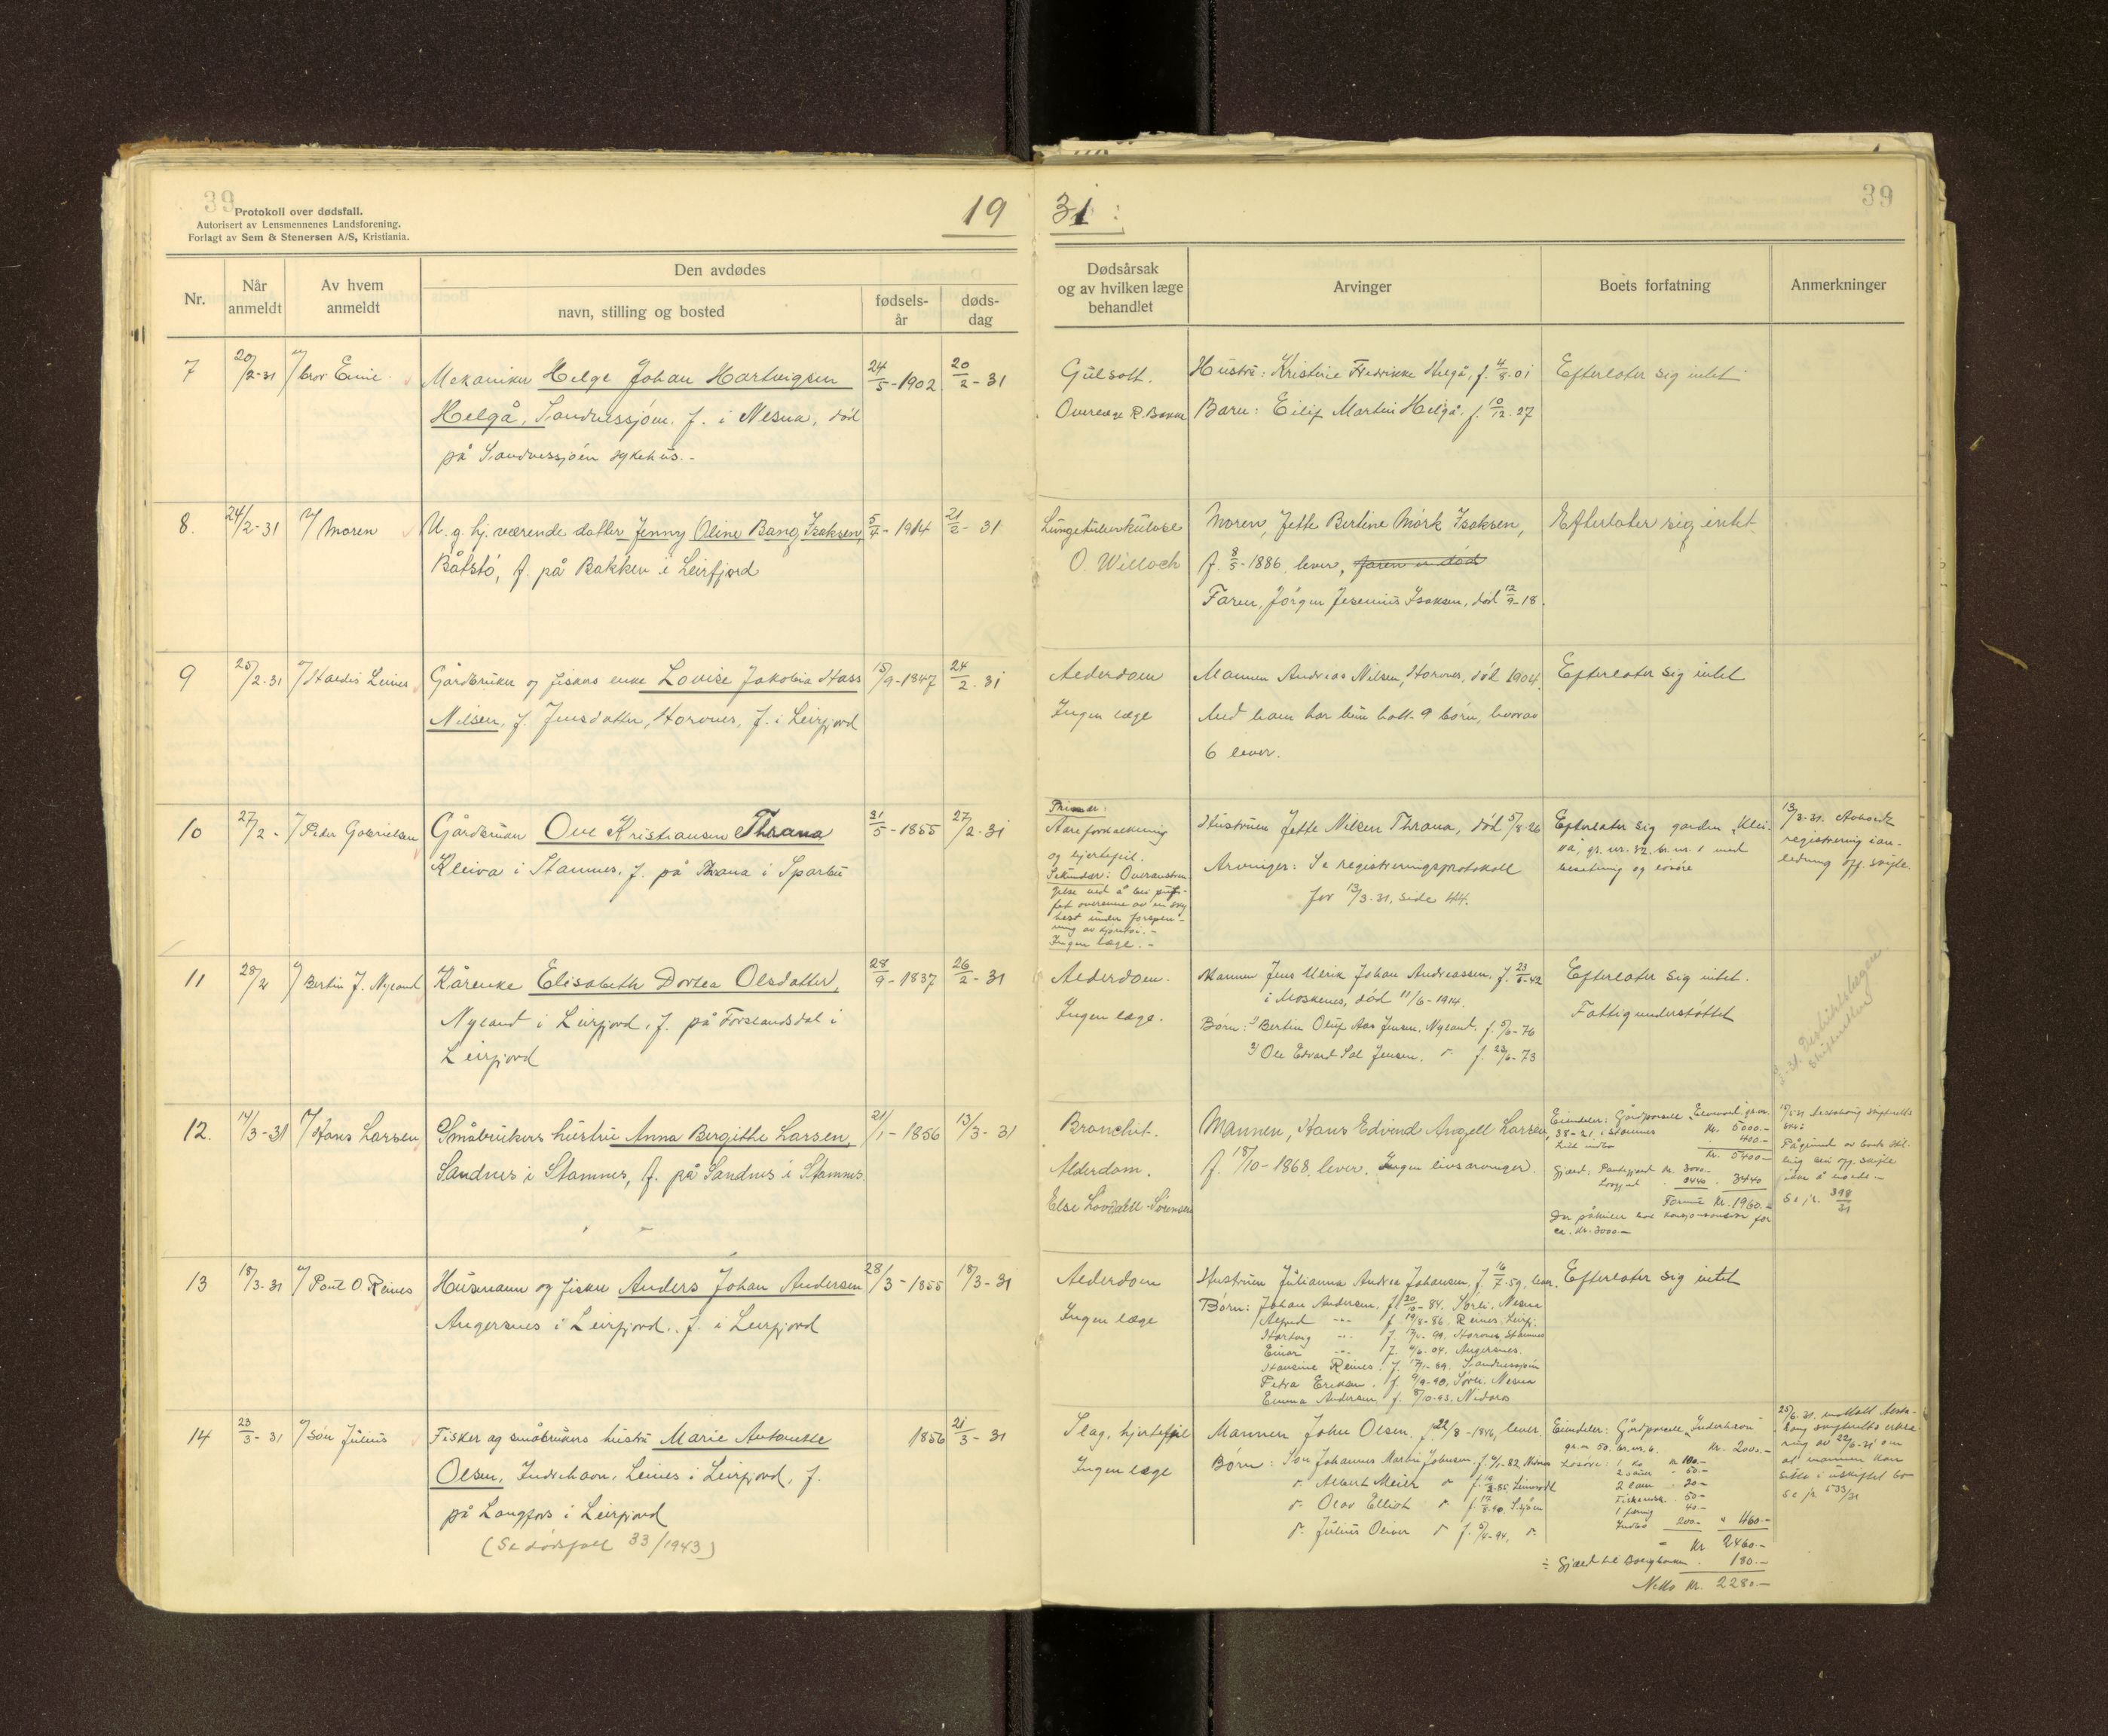 39
Protokoll over dødsfall.
Autorisert av Lensmennenes Landsforening.
Forlagt av Sem & Stenersen A/S, Kristiania.
19
31
39
Nr.
Når anmeldt
Av hvem anmeldt
Den avdødes
navn, stilling og bosted
fødsels-
år
døds-
dag
Dødsårsak
og av hvilken læge
behandlet
Arvinger
Boets forfatning
Anmerkninger
7
20/2-31
bror Emil
Mekaniker Helge Johan Hartvigsen
Helgå, Sandnessjöen. f. i Nesna, död
på Sandnessjöen sykehus.-
24/5-1902
20/2-31
Gulsott.
Overlæge R. Bakke
Hustru: Kristine Fredrikke Helgå, f. 4/8-01
Barn: Eilif Martin Helgå. f. 10/12-27
Efterlater sig intet
8.
24/2-31
Moren
U. g. hj. værende datter Jenny Oline Bang Isaksen,
Båtstö, f. på Bakken i Leirfjord
5/4-1914
21/2-31
Lungetuberkulose
O. Willoch
Moren, Jette Bertine Mörk Isaksen,
f. 8/5-1886, lever, faren er död
Faren, Jörgen Jesenius Isaksen, död 12/9-18.
Efterlater sig intet
9
25/2-31
Haldis Leines
Gårdbruker og fiskers enke Lovise Jakobia Hass
Nilsen, f. Jensdatter, Horvnes, f. i Leirfjord
15/9-1847
24/2-31
Alderdom
Ingen læge
Mannen Andreas Nilsen, Horvnes, död 1904.
Med ham har hun hatt 9 börn, hvorav
6 lever.
Efterlater sig intet
10
27/2-
Peder Gabrielsen
Gårdbruker Ove Kristiansen Thrana
Kleiva i Stamnes, f. på Thrana i Sparbu
31/5-1855
27/2-31
Primær:
Åreforkalkning
og hjertefeil.
Sekundær: Overanstren-
gelse ved å bli puf-
fet overende av en ung
hest under forspen-
ning av kjøretöi.-
Ingen læge.-
Hustruen Jette Nilsen Thrana, död 5/8-26
Arvinger: Se registreringsprotokoll
for 13/3-31, side 44.
Efterlater sig garden "Klei-
va", gr. nr. 32, br. nr. 1 med
besetning og lösöre
13/3-31. Avholdt
registrering i an-
ledning off. skifte.
11
28/2
Bertin J. Nyland
Kårenke Elisabeth Dortea Olsdatter,
Nyland i Leirfjord, f. på Forslandsdal i
Leirfjord
28/9-1837
26/2-31
Alderdom.
Ingen læge.
Mannen Jens Ulrik Johan Andreassen, f. 23/8-42
i Moskenes, död 11/6-1914.
Börn: 1) Bertin Oluf Aas Jensen, Nyland, f. 5/6-76
2) Ole Edvard Sal Jensen. f. 23/6-73
Efterlater sig intet.
Fattigunderstöttet
12.
14/3-31
Hans Larsen
Småbrukers hustru Anna Bergitte Larsen,
Sandnes i Stamnes, f. på Sandnes i Stamnes.
21/1-1856
13/3-31
Bronchit.
Alderdom.
Else Lovdahl-Sörensen
Mannen, Hans Edvind Angell Larsen,
f. 18/10-1868, lever. Ingen livsarvinger.
Eiendeler: Gårdparsell
38-21 i Stamnes Kr. 5000.-
Litt indbo 400.-
Kr. 5400.-
Gjæld: Pantegjæld kr. 3000.-
Lösgjæld 0440. 3440
Formue kr. 1960.-
ca. kr. 3000.-
Se jr. 398/31
13
18/3-31
Paul O. Reines
Husmann og fisker Anders Johan Andersen
Angersnes i Leirfjord, f. i Leirfjord
28/3-1855
18/3-31
Alderdom
Ingen læge
Hustruen Julianna Andrea Johansen, f. 16/7-59, lever.
Börn: Johan Andersen, f. 20/10-84, Sörli, Nesna
Alfred f. 19/8-86. Reines, Leirfj.
Hartvig f. 17/4-99. Horvnes, Stamnes
Einar f. 4/6-04. Angersnes.
Hansine Reines. f. 17/1-89. Sandnessjöen
Petra Eriksen. f. 9/9-90, Sörli. Nesna
Emma Andersen f. 8/10-93. Nidaros
Efterlater sig intet
14
23/3-31
sön Julius
Fisker og småbrukers hustru Marie Antonette
Olsen, Indrehavn, Leines i Leirfjord, f.
på Langfors i Leirfjord
(Se dödsfall 33/1943)
1856
21/3-31
Slag, hjertefeil
Ingen læge
Mannen Johan Olsen, f. 22/8-1846, lever.
Börn: Sön Johannes Martin Johansen f. 4/1-82, Nesna
Albert Meier f. 12/2-85, Leinesodd
Olav Elliot f. 17/8-90, S.sjöen
Julius Oliver f. 5/4-94,
Eiendeler: Gårdparsell "Inderhavn"
gr. nr. 50, br. nr. 6. kr. 2000.-
Lösöre: 1 ku kr 100.-
2 sauer - 50.-
2 lam - 20.-
Fiskeredsk. - 50.-
1 færing 40.-
Indbo 200.- " 460.-
Kr. 2460.-
÷ Gjæld til Bolagbanken. 180.-
Netto kr. 2280.-
25/6-31. mottatt Alsta-
haug skifteretts erklæ-
ring av 22/6-31 om
at mannen kan
sitte i uskiftet bo
Se jr. 533/31